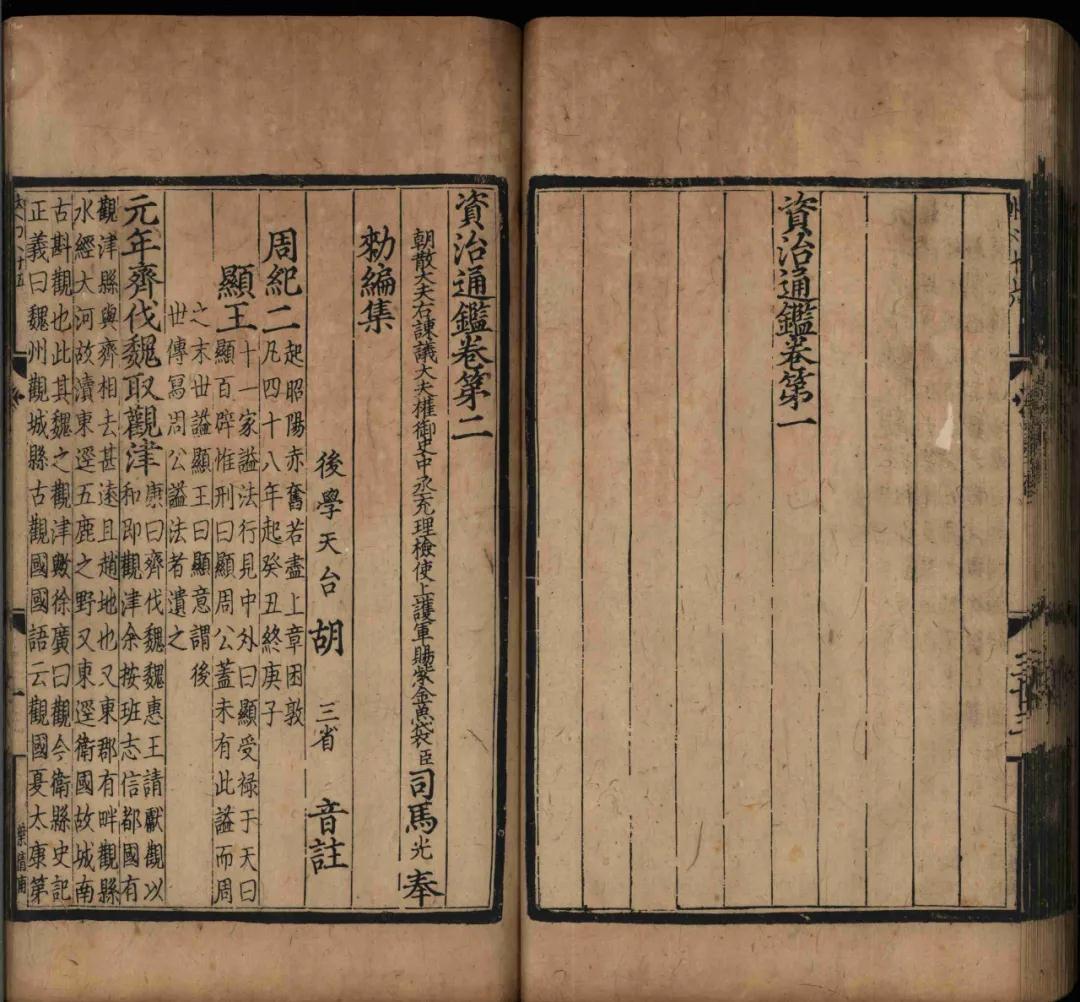 資治通鑑卷第一
資治通鑑卷第二
朝散大夫右諫議大夫權御史中丞充理檢使上護軍賜紫金魚袋臣司馬光奉
勑編集
後學天台胡三省音註
周紀二起昭陽赤奮若盡上章困敦
凡四十八年起癸丑終庚子
顯王十一家諡法行見中外曰顯受禄于天曰
顯百辟惟刑曰顯周公蓋未有此諡而周
之末世諡顯王曰顯意謂後
世傳寫周公諡法者遺之
元年齊伐魏取觀津康曰齊伐魏魏惠王請獻觀以
和即觀津余按班志信都國有
觀津縣與齊相去甚遠且趙地也又東郡有畔觀縣
水經大河故瀆東逕五鹿之野又東逕衛國故城南
古斟觀也此其魏之觀津歟徐廣曰觀今衛縣史記
正義曰魏州觀城縣古觀國國語云觀國夏太康第